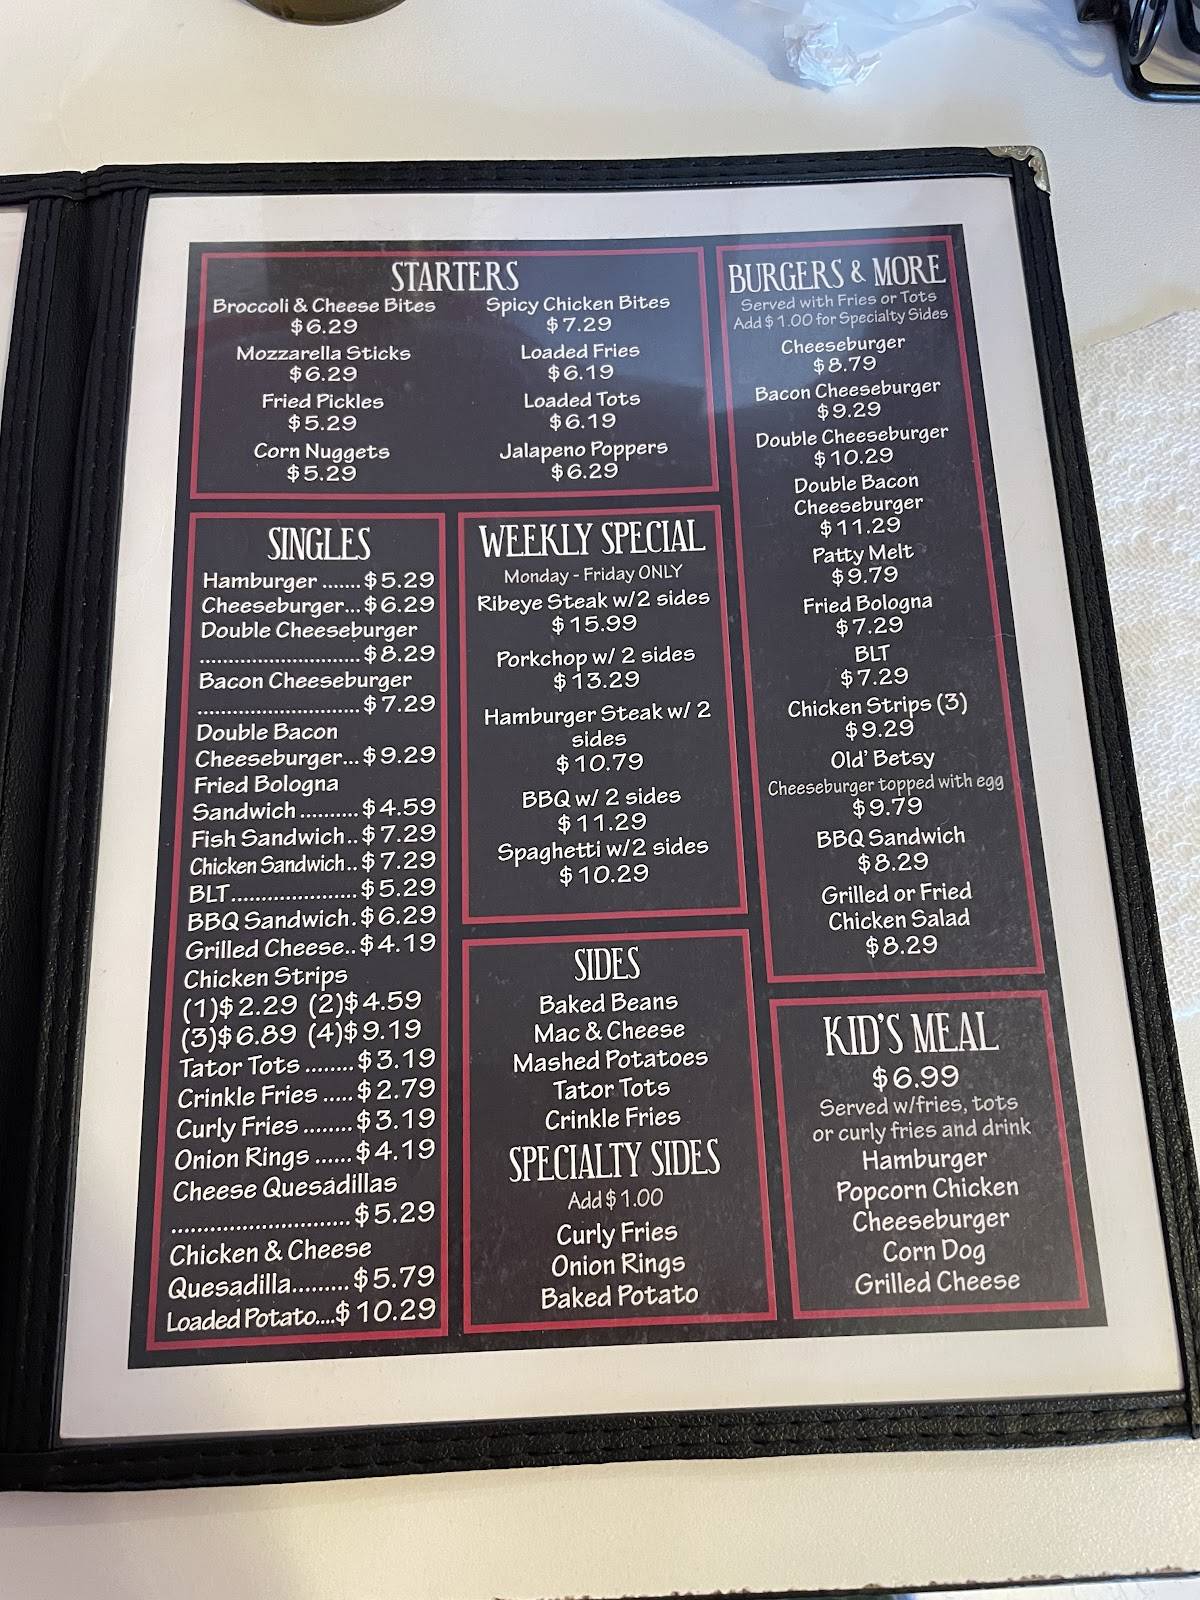 STARTERS
Broccoli & Cheese Bites
$6.29
Mozzarella Sticks
$6.29
Fried Pickles
$5.29
Corn Nuggets
$5.29
Spicy Chicken Bites
$7.29
Loaded Fries
$6.19
Loaded Tots
$6.19
Jalapeno Poppers
$6.29
SINGLES
Hamburger.......$5.29
Cheeseburger...$6.29
Double Cheeseburger
............................$8.29
Bacon Cheeseburger
............................$7.29
Double Bacon
Cheeseburger...$9.29
Fried Bologna
Sandwich..........$4.59
Fish Sandwich..$7.29
Chicken Sandwich..$7.29
BLT......................$5.29
BBQ Sandwich.$6.29
Grilled Cheese..$4.19
Chicken Strips
(1)$2.29 (2)$4.59
(3)$6.89 (4)$9.19
Tator Tots.........$3.19
Crinkle Fries.....$2.79
Curly Fries........$3.19
Onion Rings......$4.19
Cheese Quesadillas
.............................$5.29
Chicken & Cheese
Quesadilla.........$5.79
Loaded Potato....$10.29
WEEKLY SPECIAL
Monday - Friday ONLY
Ribeye Steak w/2 sides
$15.99
Porkchop w/ 2 sides
$13.29
Hamburger Steak w/ 2
sides
$10.79
BBQ w/ 2 sides
$11.29
Spaghetti w/2 sides
$10.29
SIDES
Baked Beans
Mac & Cheese
Mashed Potatoes
Tator Tots
Crinkle Fries
SPECIALTY SIDES
Add $1.00
Curly Fries
Onion Rings
Baked Potato
BURGERS & MORE
Served with Fries or Tots
Add $1.00 for Specialty Sides
Cheeseburger
$8.79
Bacon Cheeseburger
$9.29
Double Cheeseburger
$10.29
Double Bacon
Cheeseburger
$11.29
Patty Melt
$9.79
Fried Bologna
$7.29
BLT
$7.29
Chicken Strips (3)
$9.29
Old' Betsy
Cheeseburger topped with egg
$9.79
BBQ Sandwich
$8.29
Grilled or Fried
Chicken Salad
$8.29
KID'S MEAL
$6.99
Served w/fries, tots
or curly fries and drink
Hamburger
Popcorn Chicken
Cheeseburger
Corn Dog
Grilled Cheese